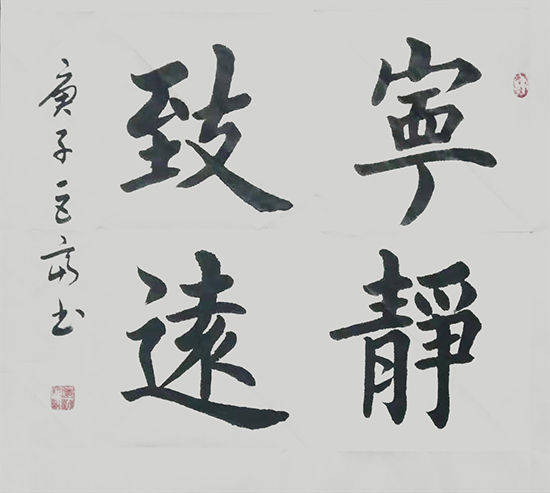 寧靜
致遠
庚子 书